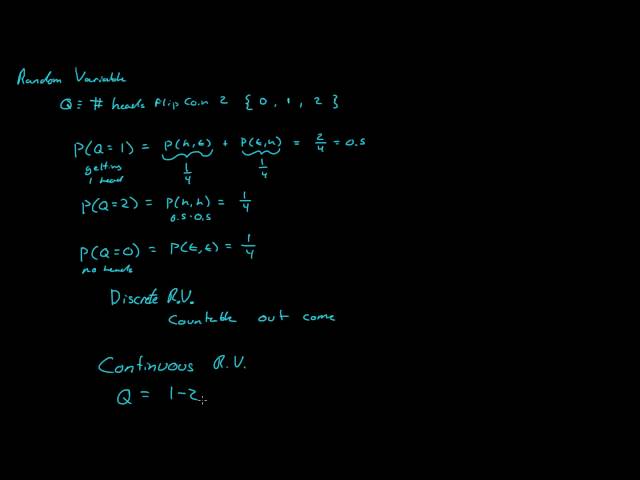 Random Variable
Q = # heads flip coin 2 { 0 , 1 , 2 }
P(Q=1) = P(h,t) + P(t,h) = 2/4 = 0.5
getting 1 head 1/4 1/4
P(Q=2) = P(h,h) = 1/4
0.5 · 0.5
P(Q=0) = P(t,t) = 1/4
no heads
Discrete R.V.
Countable out come
Continuous R.V.
Q = 1-2